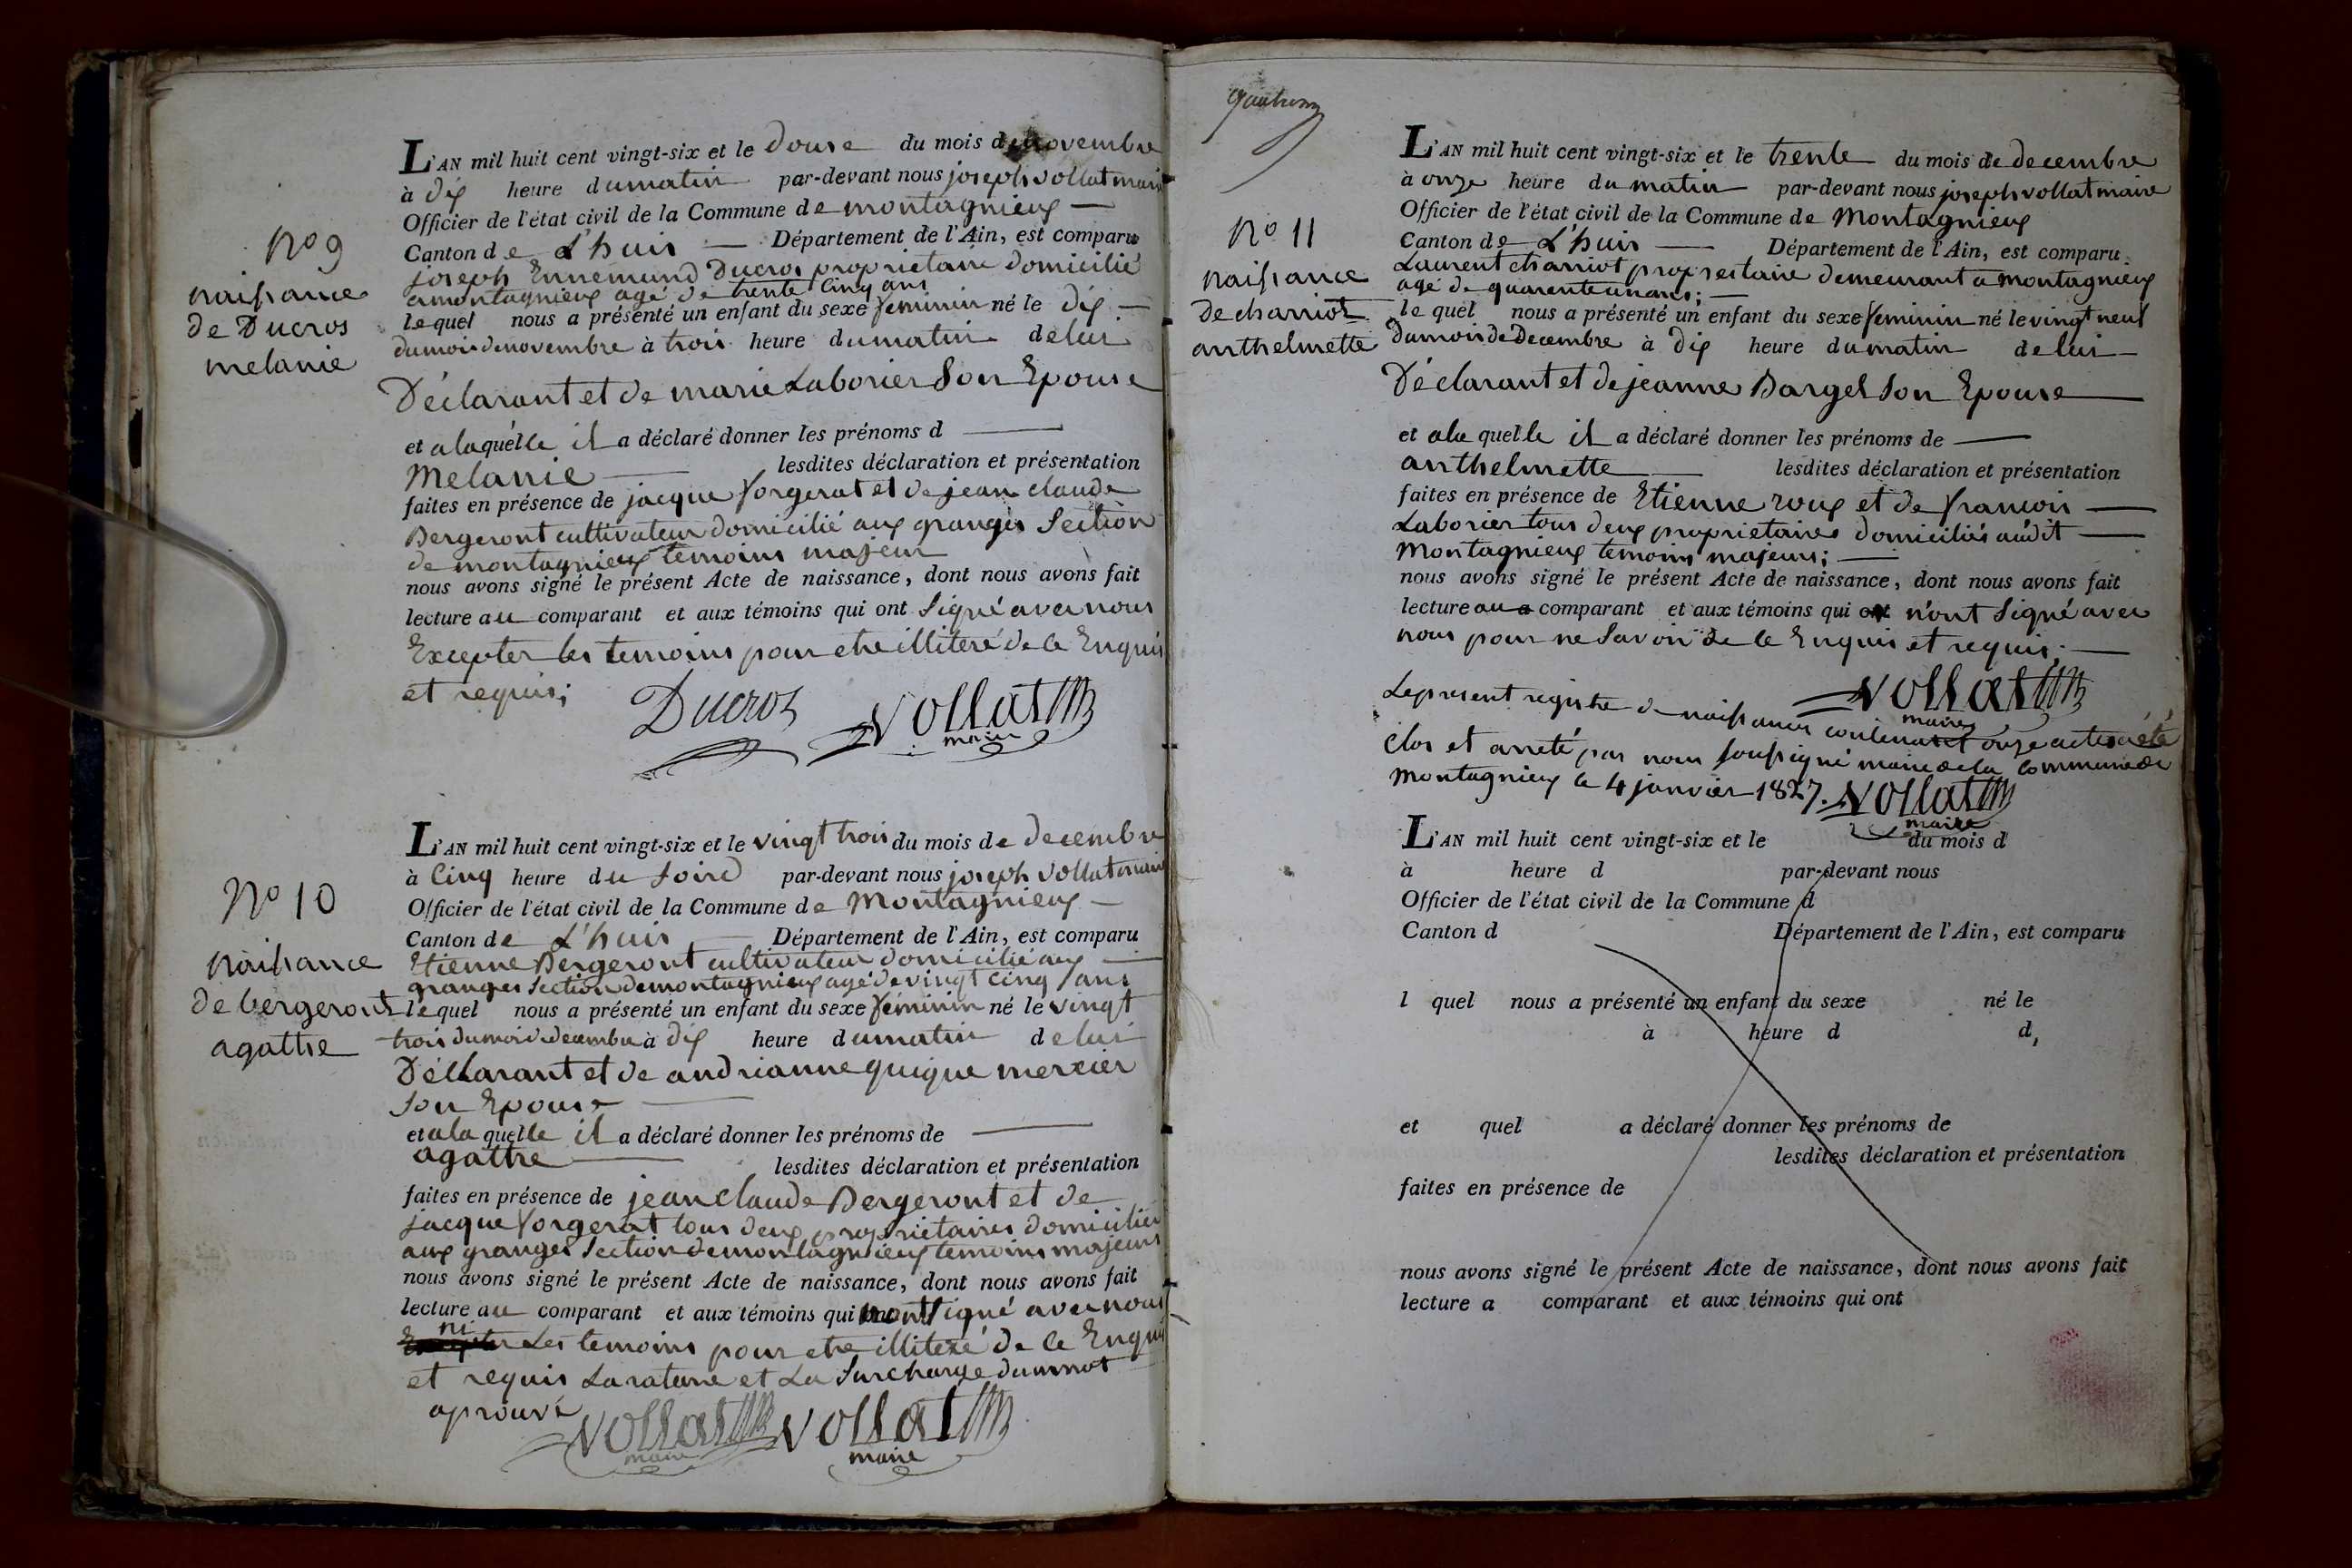 No 9
naissance
de Ducros
melanie
L'AN mil huit cent vingt-six et le douse du mois de novembre
à dix heure du matin par-devant nous joseph vollat maire
Officier de l'état civil de la Commune de montagnieux
Canton de L'huis Département de l'Ain, est comparu
joseph Ennemund Ducros proprietaire domicilié
a montagnieux agé de trente cinq ans
le quel nous a présenté un enfant du sexe feminin né le dix
du mois de novembre à trois heure du matin de lui
Déclarant et de marie Laborier Son Epouse
et a laquelle il a déclaré donner les prénoms d
Melanie lesdites déclaration et présentation
faites en présence de jacque forgerat et de jean claude
Bergeront cultivateur domicilié aux granges Section
de montagnieux temoins majeur
nous avons signé le présent Acte de naissance, dont nous avons fait
lecture au comparant et aux témoins qui ont Signé avec nous
Excepter les temoins pour etre illiteré de ce Enquis
et requis;
Ducros vollat
maire
No 10
naissance
de bergeront
agathe
L'AN mil huit cent vingt-six et le vingt trois du mois de decembre
à Cinq heure du soir par-devant nous joseph vollat maire
Officier de l'état civil de la Commune de Montagnieux
Canton de L'huis Département de l'Ain, est comparu
Etienne Bergeront cultivateur domicilié aux
granges Section de montagnieux agé de vingt cinq ans
le quel nous a présenté un enfant du sexe féminin né le vingt
trois du mois de decembre à dix heure du matin de lui
Déclarant et de andrianne quique mercier
son Epouse
et a la quelle il a déclaré donner les prénoms de
agathe lesdites déclaration et présentation
faites en présence de jean claude Bergeront et de
jacque forgerat tous deux proprietaires domiciliés
aux granges Section de montagnieux temoins majeurs
nous avons signé le présent Acte de naissance, dont nous avons fait
lecture au comparant et aux témoins qui n'ont signé avec nous
ni Les temoins pour etre illiteré de ce Enquis
et requis La rature et La Surcharge du mot
aprouvé
vollat vollat
maire maire
No 11
naissance
de charriot
anthelmette
L'AN mil huit cent vingt-six et le trente du mois de decembre
à onze heure du matin par-devant nous joseph vollat maire
Officier de l'état civil de la Commune de Montagnieux
Canton de L'huis Département de l'Ain, est comparu
Laurent charriot proprietaire demeurant a montagnieux
agé de quarente un ans;
le quel nous a présenté un enfant du sexe feminin né le vingt neuf
du mois de Decembre à dix heure du matin de lui
Déclarant et de jeanne Barget son Epouse
et a la quelle il a déclaré donner les prénoms de
anthelmette lesdites déclaration et présentation
faites en présence de Etienne roux et de francois
Laborier tous deux proprietaires domiciliés audit
Montagnieux temoins majeurs;
nous avons signé le présent Acte de naissance, dont nous avons fait
lecture au comparant et aux témoins qui n'ont signé avec
nous pour ne savoir de ce Enquis et requis.
vollat
maire
Le present registre de naissances contenant onze actes a été
Clos et arreté par nous soussigné maire de la Commune de
Montagnieux le 4 janvier 1827. vollat
maire
L'AN mil huit cent vingt-six et le du mois d
à heure d par-devant nous
Officier de l'état civil de la Commune d
Canton d Département de l'Ain, est comparu
l quel nous a présenté un enfant du sexe né le
à heure d d,
et quel a déclaré donner les prénoms de
lesdites déclaration et présentation
faites en présence de
nous avons signé le présent Acte de naissance, dont nous avons fait
lecture a comparant et aux témoins qui ont